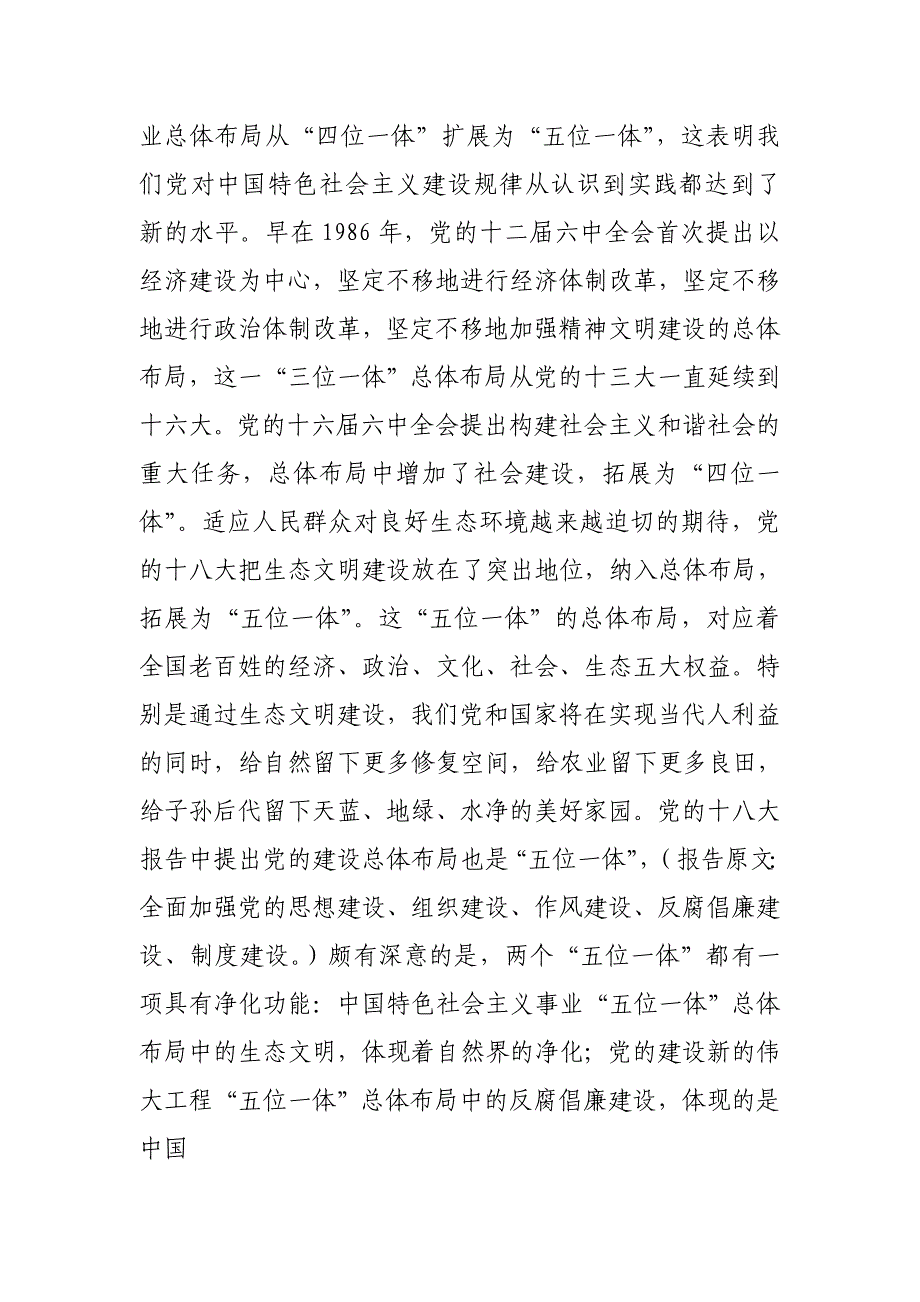 业总体布局从“四位一体”扩展为“五位一体”，这表明我
们党对中国特色社会主义建设规律从认识到实践都达到了
新的水平。早在 1986 年，党的十二届六中全会首次提出以
经济建设为中心，坚定不移地进行经济体制改革，坚定不移
地进行政治体制改革，坚定不移地加强精神文明建设的总体
布局，这一“三位一体”总体布局从党的十三大一直延续到
十六大。党的十六届六中全会提出构建社会主义和谐社会的
重大任务，总体布局中增加了社会建设，拓展为“四位一
体”。适应人民群众对良好生态环境越来越迫切的期待，党
的十八大把生态文明建设放在了突出地位，纳入总体布局，
拓展为“五位一体”。这“五位一体”的总体布局，对应着
全国老百姓的经济、政治、文化、社会、生态五大权益。特
别是通过生态文明建设，我们党和国家将在实现当代人利益
的同时，给自然留下更多修复空间，给农业留下更多良田，
给子孙后代留下天蓝、地绿、水净的美好家园。党的十八大
报告中提出党的建设总体布局也是“五位一体”，（报告原文：
全面加强党的思想建设、组织建设、作风建设、反腐倡廉建
设、制度建设。）颇有深意的是，两个“五位一体”都有一
项具有净化功能：中国特色社会主义事业“五位一体”总体
布局中的生态文明，体现着自然界的净化；党的建设新的伟
大工程“五位一体”总体布局中的反腐倡廉建设，体现的是
中国